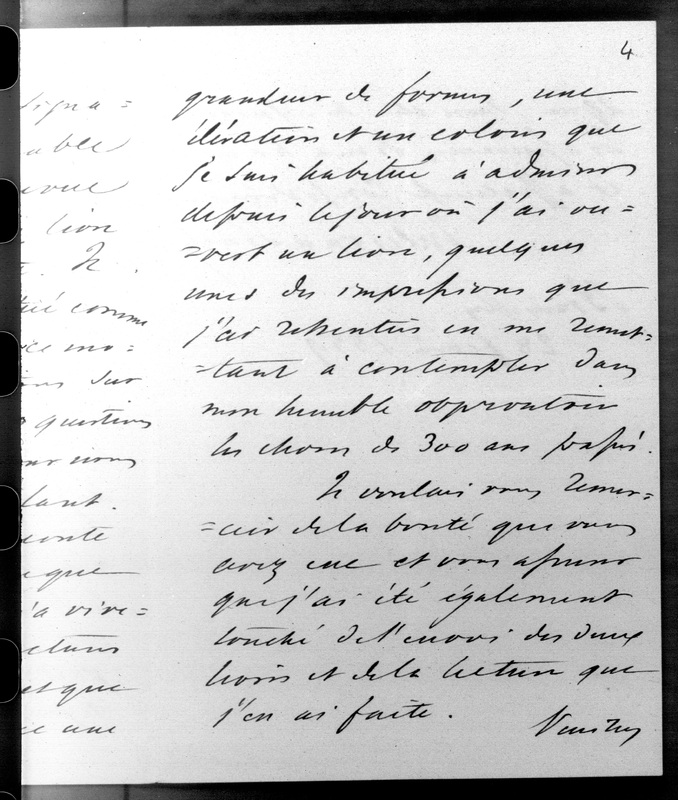 4
signa=
able
livre
. Je
comme
ce mo=
sur
questions
nous
lant.
conte
que
a vive=
et que
ce une
grandeur de formes, une
élévation et un coloris que
je suis habitué à admirer
depuis le jour où j'ai ou=
=vert un livre, quelques
unes des impressions que
j'ai ressenties en me remet=
=tant à contempler dans
mon humble observatoire
les choses de 300 ans passés.
Je voulais vous remer=
=cier de la bonté que vous
avez eue et vous assurer
que j'ai été également
touché de l'envoi des deux
livres et de la lecture que
j'en ai faite.